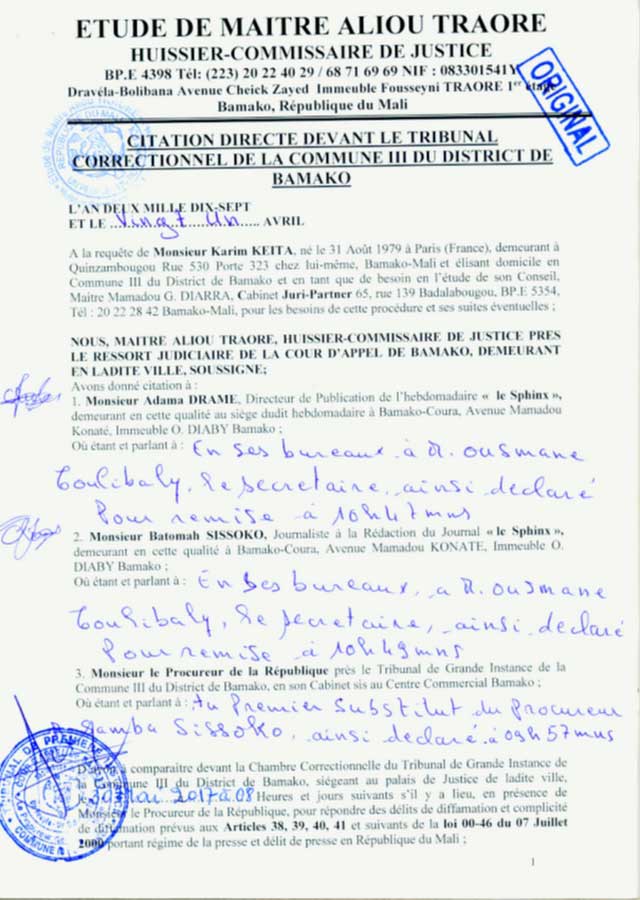 ETUDE DE MAITRE ALIOU TRAORE
HUISSIER-COMMISSAIRE DE JUSTICE
BP.E 4398 Tél: (223) 20 22 40 29 / 68 71 69 69 NIF : 083301541Y
Dravéla-Bolibana Avenue Cheick Zayed Immeuble Fousseyni TRAORE 1er étage
Bamako, République du Mali
ORIGINAL
CITATION DIRECTE DEVANT LE TRIBUNAL
CORRECTIONNEL DE LA COMMUNE III DU DISTRICT DE
BAMAKO
L'AN DEUX MILLE DIX-SEPT
ET LE ...Vingt Un... AVRIL
A la requête de Monsieur Karim KEITA, né le 31 Août 1979 à Paris (France), demeurant à
Quinzambougou Rue 530 Porte 323 chez lui-même, Bamako-Mali et élisant domicile en
Commune III du District de Bamako et en tant que de besoin en l'étude de son Conseil,
Maitre Mamadou G. DIARRA, Cabinet Juri-Partner 65, rue 139 Badalabougou, BP.E 5354,
Tél : 20 22 28 42 Bamako-Mali, pour les besoins de cette procédure et ses suites éventuelles ;
NOUS, MAITRE ALIOU TRAORE, HUISSIER-COMMISSAIRE DE JUSTICE PRES
LE RESSORT JUDICIAIRE DE LA COUR D'APPEL DE BAMAKO, DEMEURANT
EN LADITE VILLE, SOUSSIGNE;
Avons donné citation à :
1. Monsieur Adama DRAME, Directeur de Publication de l'hebdomadaire « le Sphinx »,
demeurant en cette qualité au siège dudit hebdomadaire à Bamako-Coura, Avenue Mamadou
Konaté, Immeuble O. DIABY Bamako ;
Où étant et parlant à : En ses bureaux à M. ousmane
Coulibaly, le secretaire, ainsi declaré
Pour remise à 10h47mns
2. Monsieur Batomah SISSOKO, Journaliste à la Rédaction du Journal « le Sphinx »,
demeurant en cette qualité à Bamako-Coura, Avenue Mamadou KONATE, Immeuble O.
DIABY Bamako ;
Où étant et parlant à : En ses bureaux, a M. ousmane
Coulibaly, le secretaire, ainsi declaré
Pour remise à 10h49mns
3. Monsieur le Procureur de la République près le Tribunal de Grande Instance de la
Commune III du District de Bamako, en son Cabinet sis au Centre Commercial Bamako ;
Où étant et parlant à : Au Premier Substitut du Procureur
Samba Sissoko, ainsi declaré à 09h57mns
D'avoir à comparaitre devant la Chambre Correctionnelle du Tribunal de Grande Instance de
la Commune III du District de Bamako, siégeant au palais de Justice de ladite ville,
le 30 Mai 2017 à 08 Heures et jours suivants s'il y a lieu, en présence de
Monsieur le Procureur de la République, pour répondre des délits de diffamation et complicité
de diffamation prévus aux Articles 38, 39, 40, 41 et suivants de la loi 00-46 du 07 Juillet
2000 portant régime de la presse et délit de presse en République du Mali ;
1